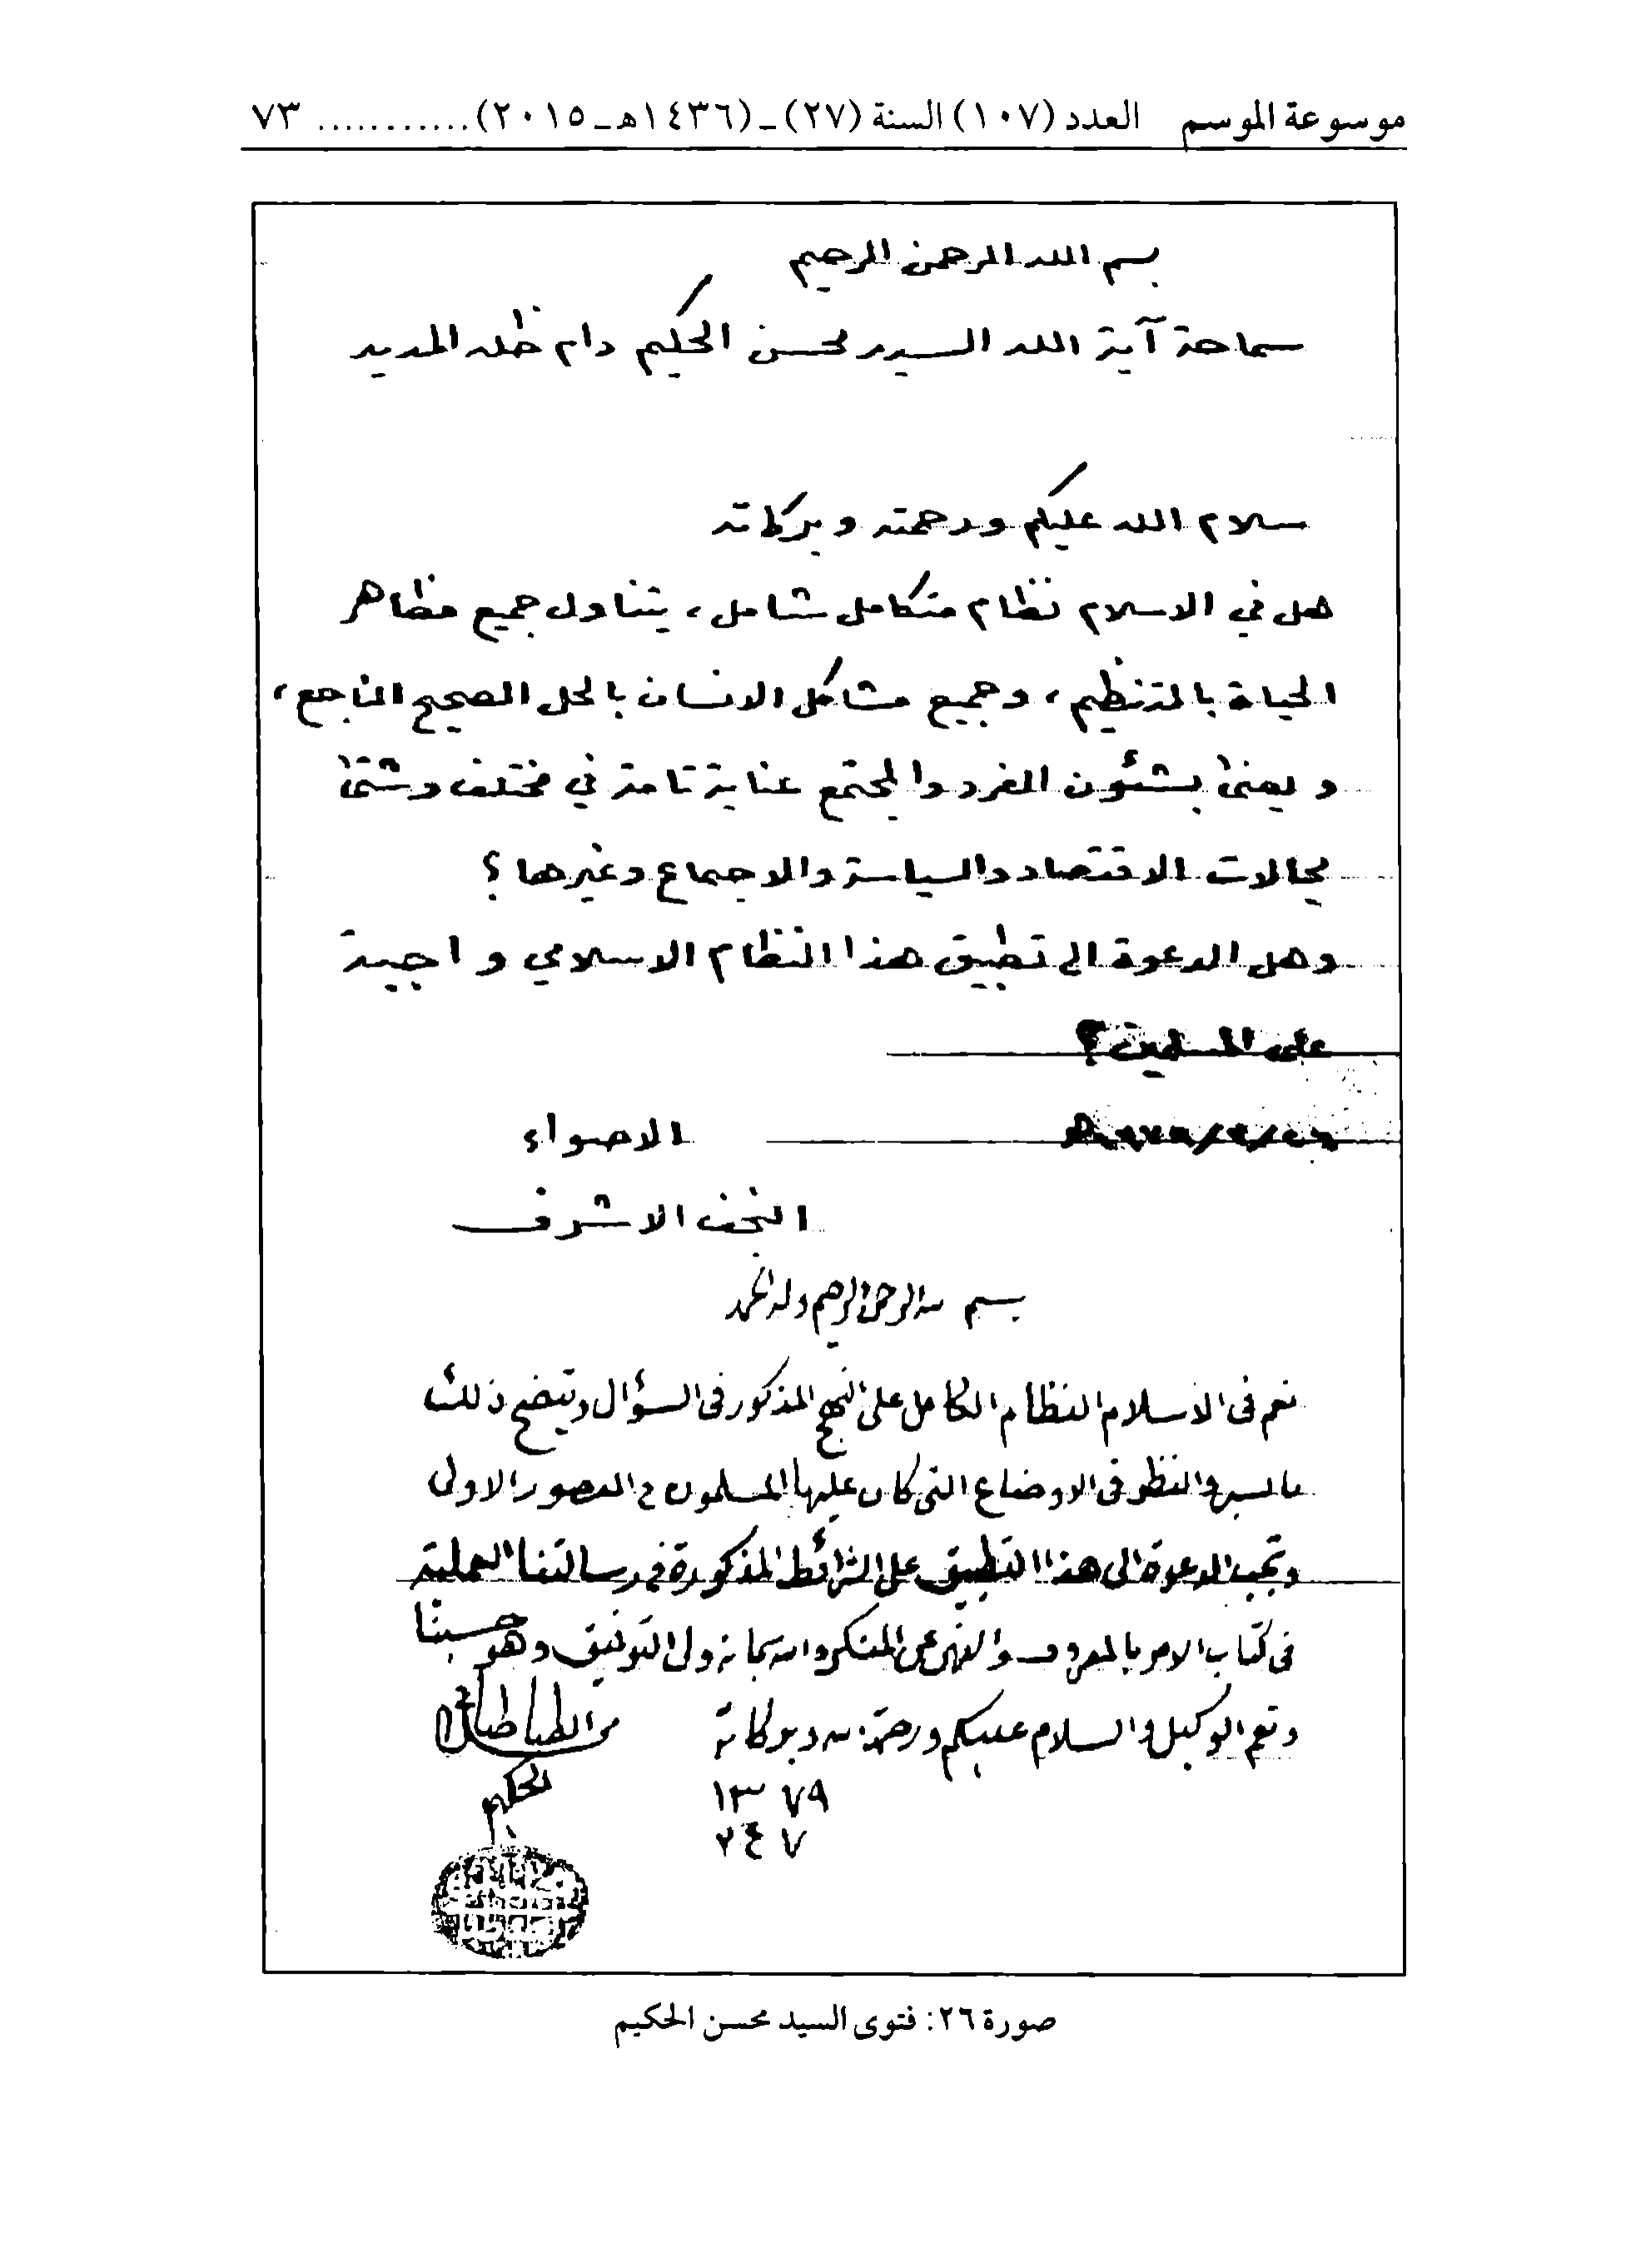 موسوعة الموسم العدد (١٠٧) السنة (٢٧) ـ (١٤٣٦هـ ـ ٢٠١٥) ............ ٧٣
بسم الله الرحمن الرحيم
سماحة آية الله السيد محسن الحكيم دام ظله المديد
سلام الله عليكم ورحمته وبركاته
هل في الاسلام نظام متكامل شامل، يتناول جميع مظاهر
الحياة بالتنظيم، وجميع مشاكل الانسان بالحل الصحيح الناجع،
ويعنى بشئون الفرد والمجتمع عناية تامة في مختلف وشتى
مجالات الاقتصاد والسياسة والاجماع وغيرها؟
وهل الدعوة الى تطبيق هذا النظام الاسلامي واجبة
على المسلمين؟
الاضواء
النجف الاشرف
بسم الله الرحمن الرحيم وله الحمد
نعم في الاسلام النظام الكامل على النهج المذكور في السؤال ويتضح ذلك
والنظر في الاوضاع التي كان عليها المسلمون في العصور الاولى
وتجب الدعوة الى هذا التطبيق على الشرائط المذكورة في رسالتنا العملية
في كتاب الامر بالمعروف والنهي عن المنكر والله سبحانه ولي التوفيق وهو حسبنا
ونعم الوكيل والسلام عليكم ورحمة الله وبركاته
محسن الطباطبائي
الحكيم
١٣٧٩
٢٤٧
صورة ٢٦: فتوى السيد محسن الحكيم